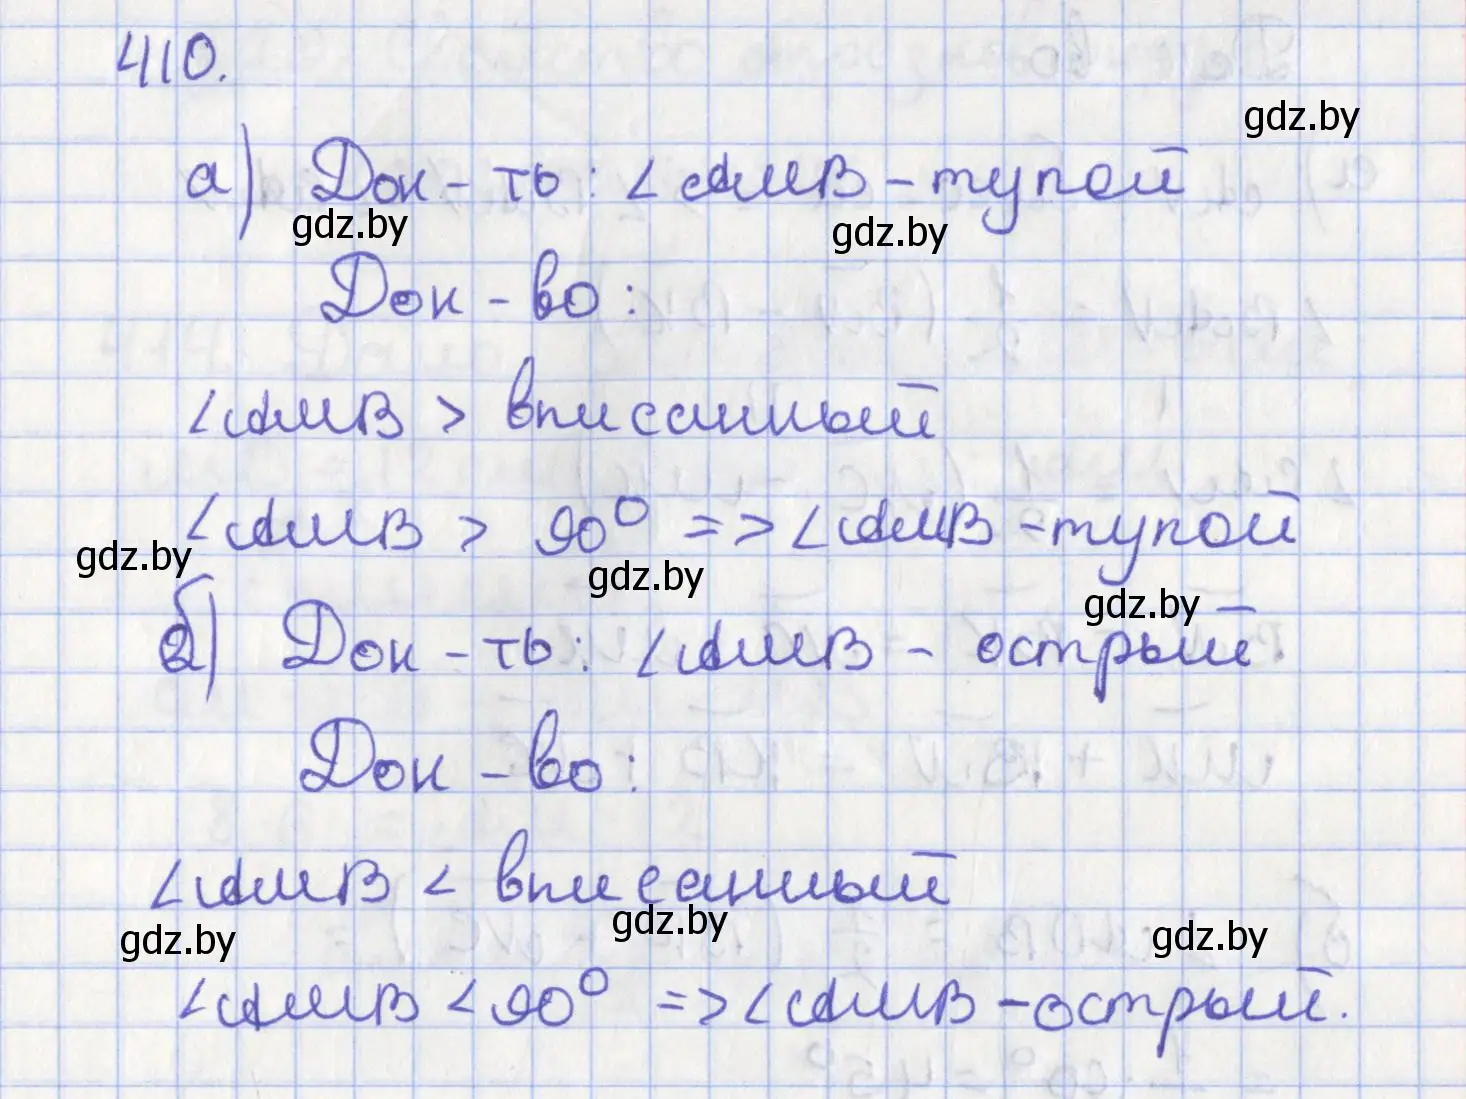 410.
gdz.by
а) Док-ть: ∠AMB - тупой
gdz.by gdz.by
Док-во:
∠AMB > вписанный
∠AMB > 90° => ∠AMB - тупой
gdz.by gdz.by gdz.by
б) Док-ть: ∠AMB - острый
Док-во:
∠AMB < вписанный
gdz.by gdz.by gdz.by
∠AMB < 90° => ∠AMB - острый.